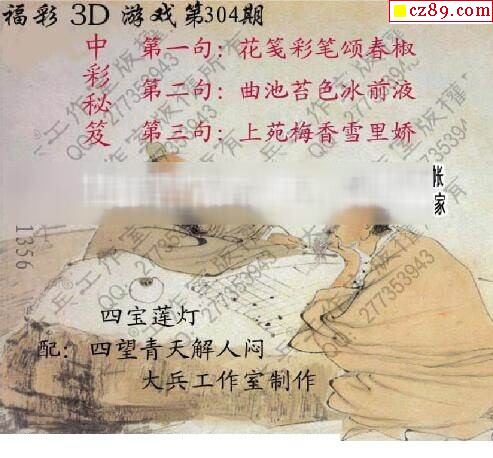 cz89.com
福彩 3D 游戏第304期
中彩秘笈
第一句：花笺彩笔颂春椒
第二句：曲池苔色冰前液
第三句：上苑梅香雪里娇
1356
四宝莲灯
配：四望青天解人闷
大兵工作室制作
兵工作室版權所有
QQ:277353943